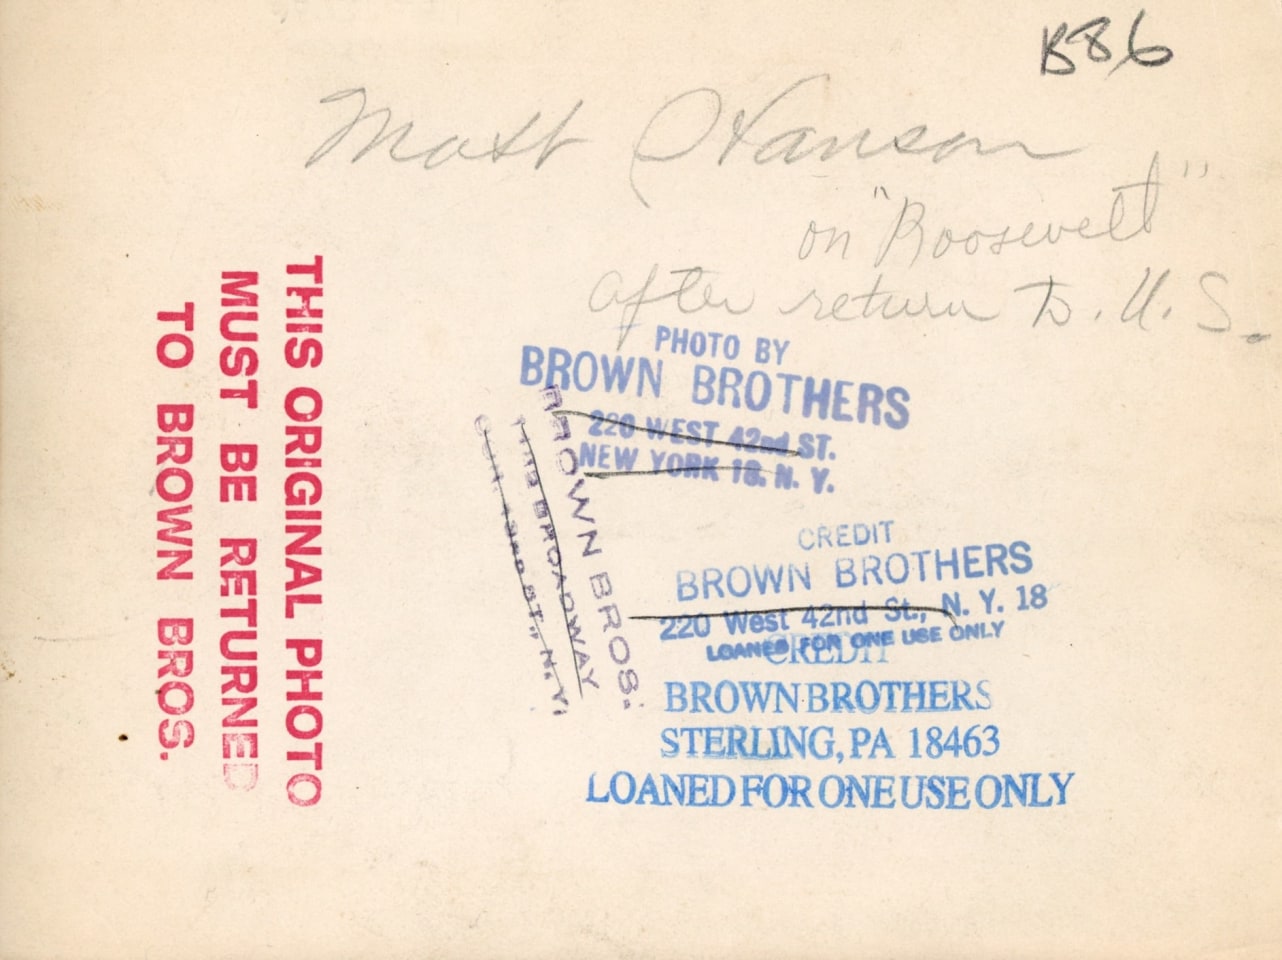 B86
Matt Hanson
on "Roosevelt"
after return to. U.S.
THIS ORIGINAL PHOTO
MUST BE RETURNED
TO BROWN BROS.
PHOTO BY
BROWN BROTHERS
220 WEST 42nd ST.
NEW YORK 18. N. Y.
BROWN BROS.
BROADWAY
43RD ST., N.Y.
CREDIT
BROWN BROTHERS
220 West 42nd St., N. Y. 18
LOANED FOR ONE USE ONLY
CREDIT
BROWN BROTHERS
STERLING, PA 18463
LOANED FOR ONE USE ONLY